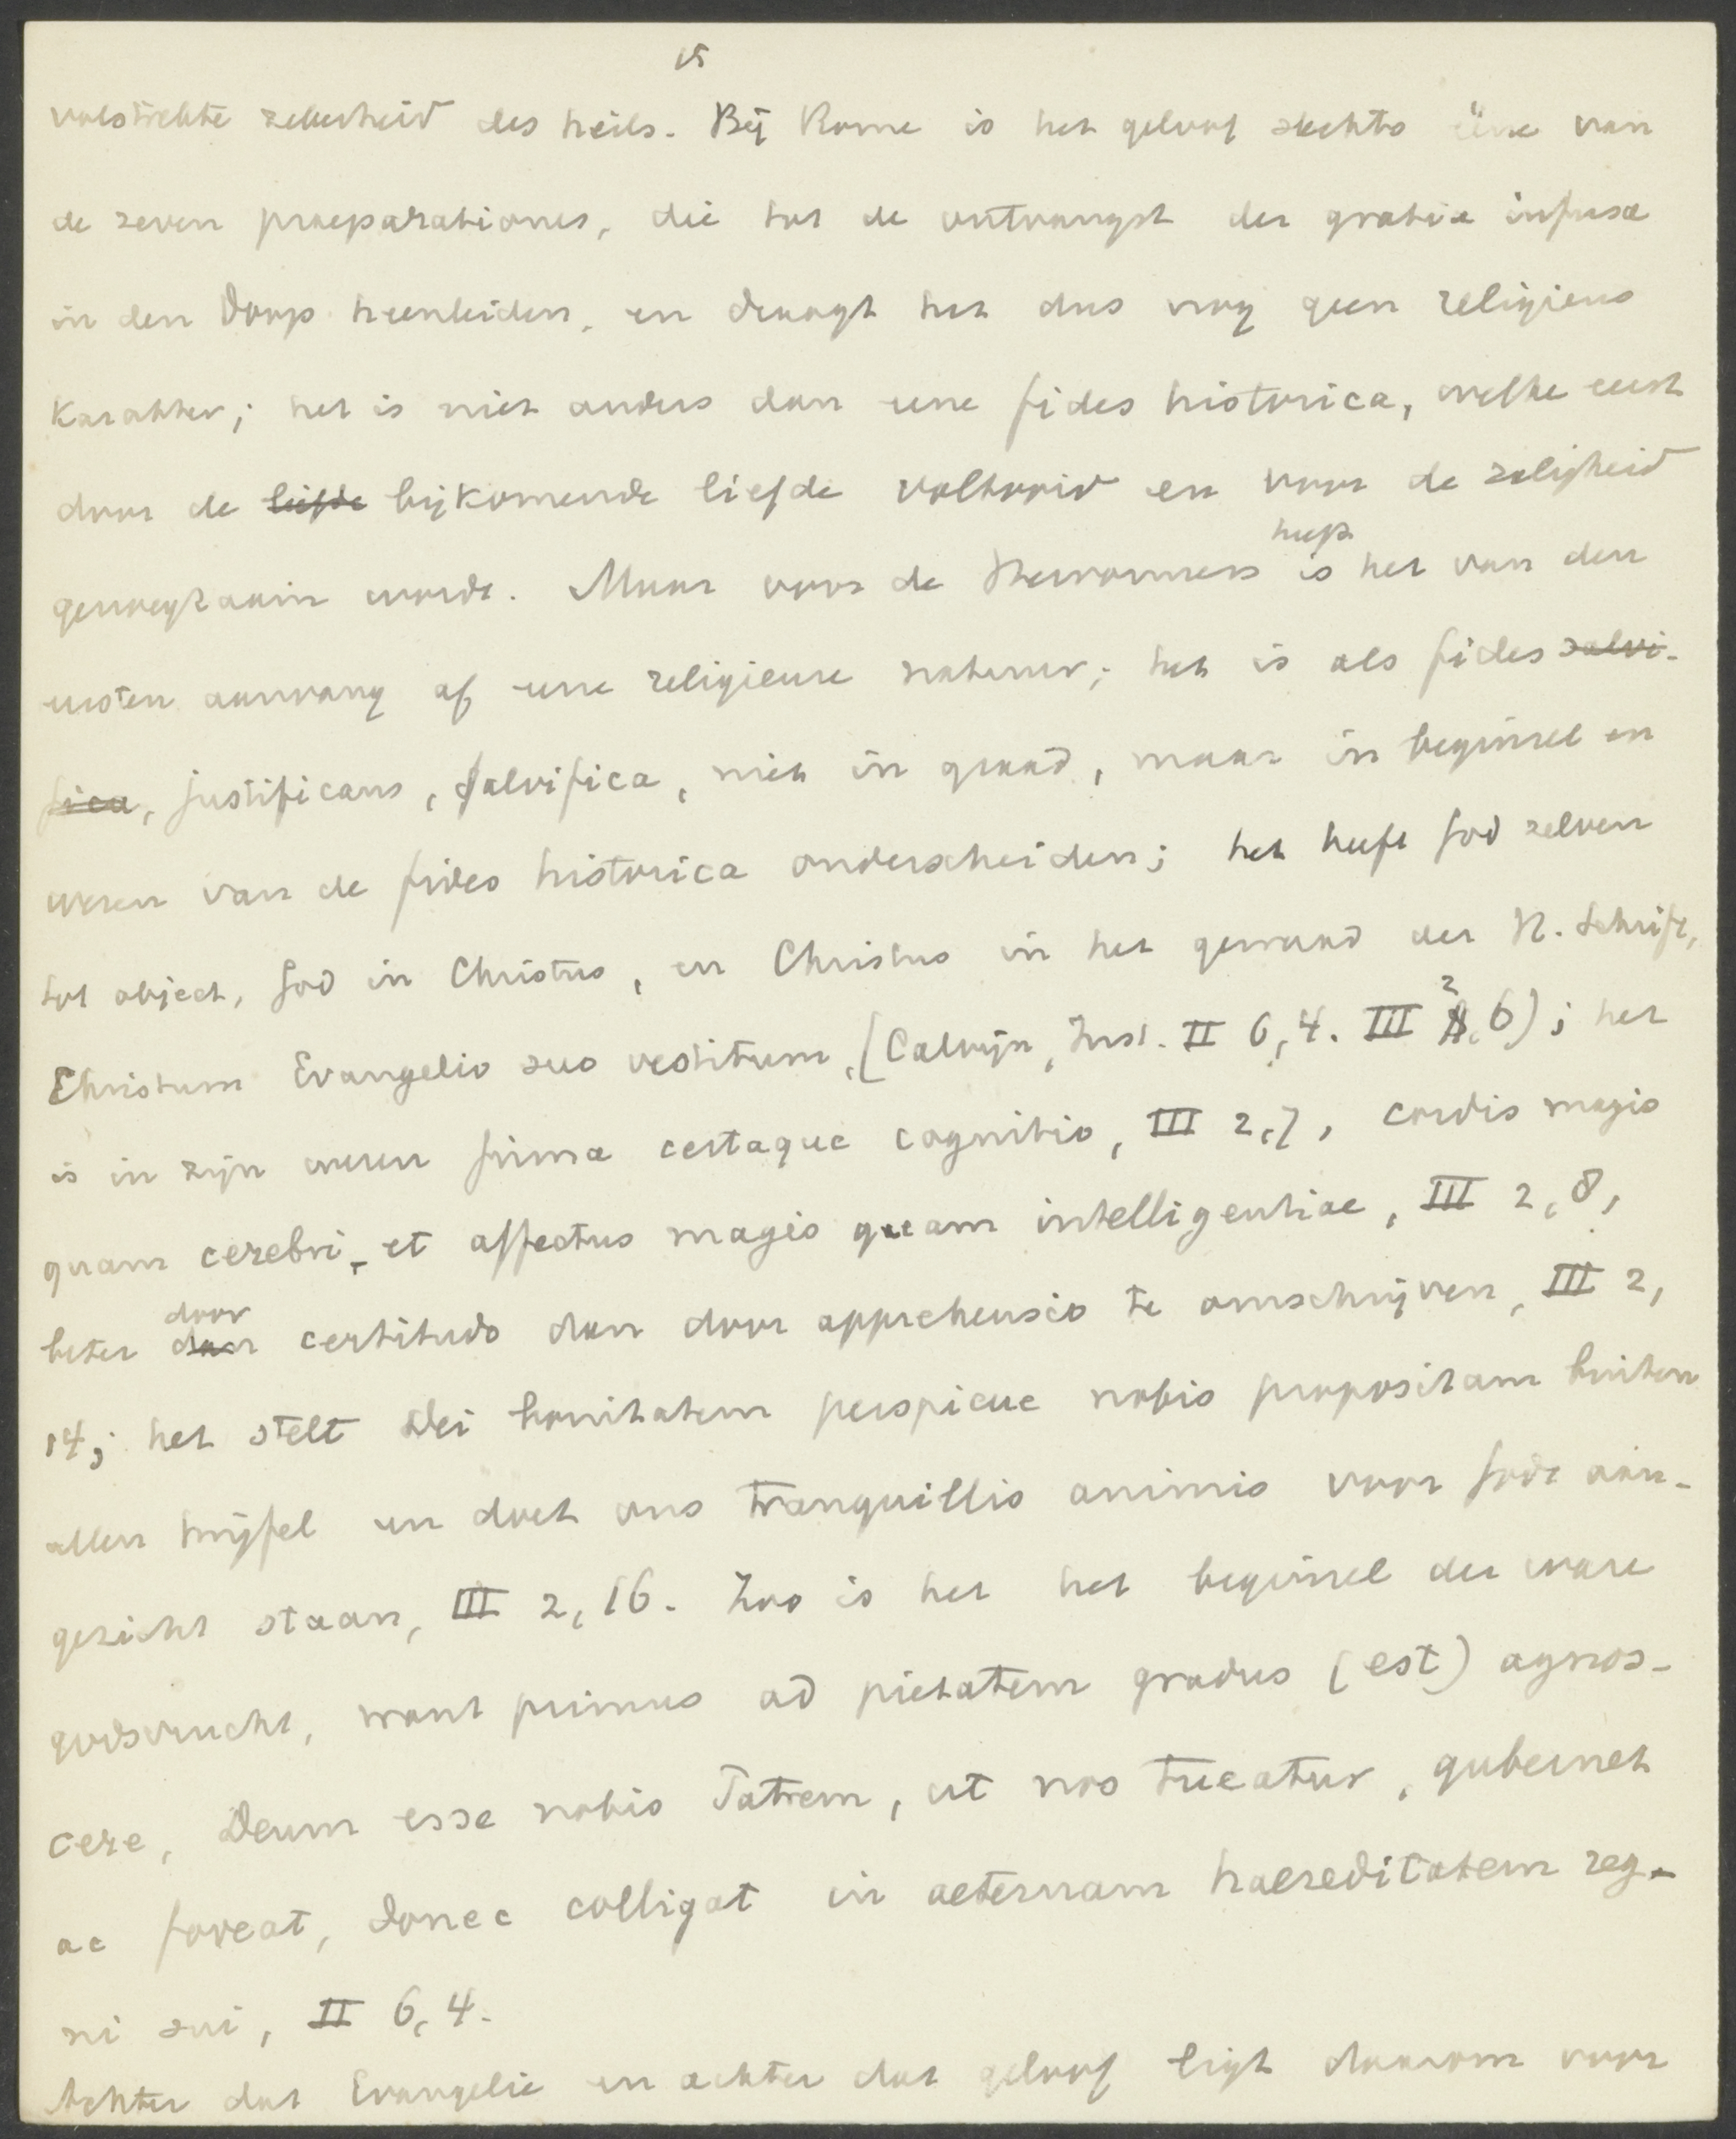 15
volstrekte zekerheid des heils. Bij Rome is het geloof slechts ééne van
de zeven praeparationes, die tot de ontvangst der gratia infusa
in den doop heenleiden, en draagt het dus nog geen religieus
karakter; het is niet anders dan eene fides historica, welke eerst
door de liefde bijkomende liefde voltooid en voor de zaligheid
heeft
genoegzaam wordt. Maar voor de Hervormers is het van den
eersten aanvang af eene religieuse natuur; het is als fides salvi-
fica, justificans, salvifica, niet in graad, maar in beginsel en
wezen van de fides historica onderscheiden; het heeft God zelven
tot object, God in Christus, en Christus in het gewaad der H. Schrift,
2
Christum Evangelio suo vestitum, (Calvijn, Inst. II 6, 4. III 6); het
is in zijn wezen firma certaque cognitio, III 2,7, cordis magis
quam cerebri, et affectus magis quam intelligentiae, III 2,8,
door
beter dan certitudo dan door apprehensio te omschrijven, III 2,
14; het stelt Dei bonitatem perspicue nobis propositam buiten
allen twijfel en doet ons tranquillis animis voor Gods aan-
gezicht staan, III 2, 16. Zoo is het het beginsel der ware
godsvrucht, want primus ad pietatem gradus (est) agnos-
cere, Deum esse nobis Patrem, ut nos tueatur, gubernet
ac foveat, donec colligat in aeternam haereditatem reg-
ni sui, II 6, 4.
Achter dat Evangelie en achter dat geloof ligt daarom voor